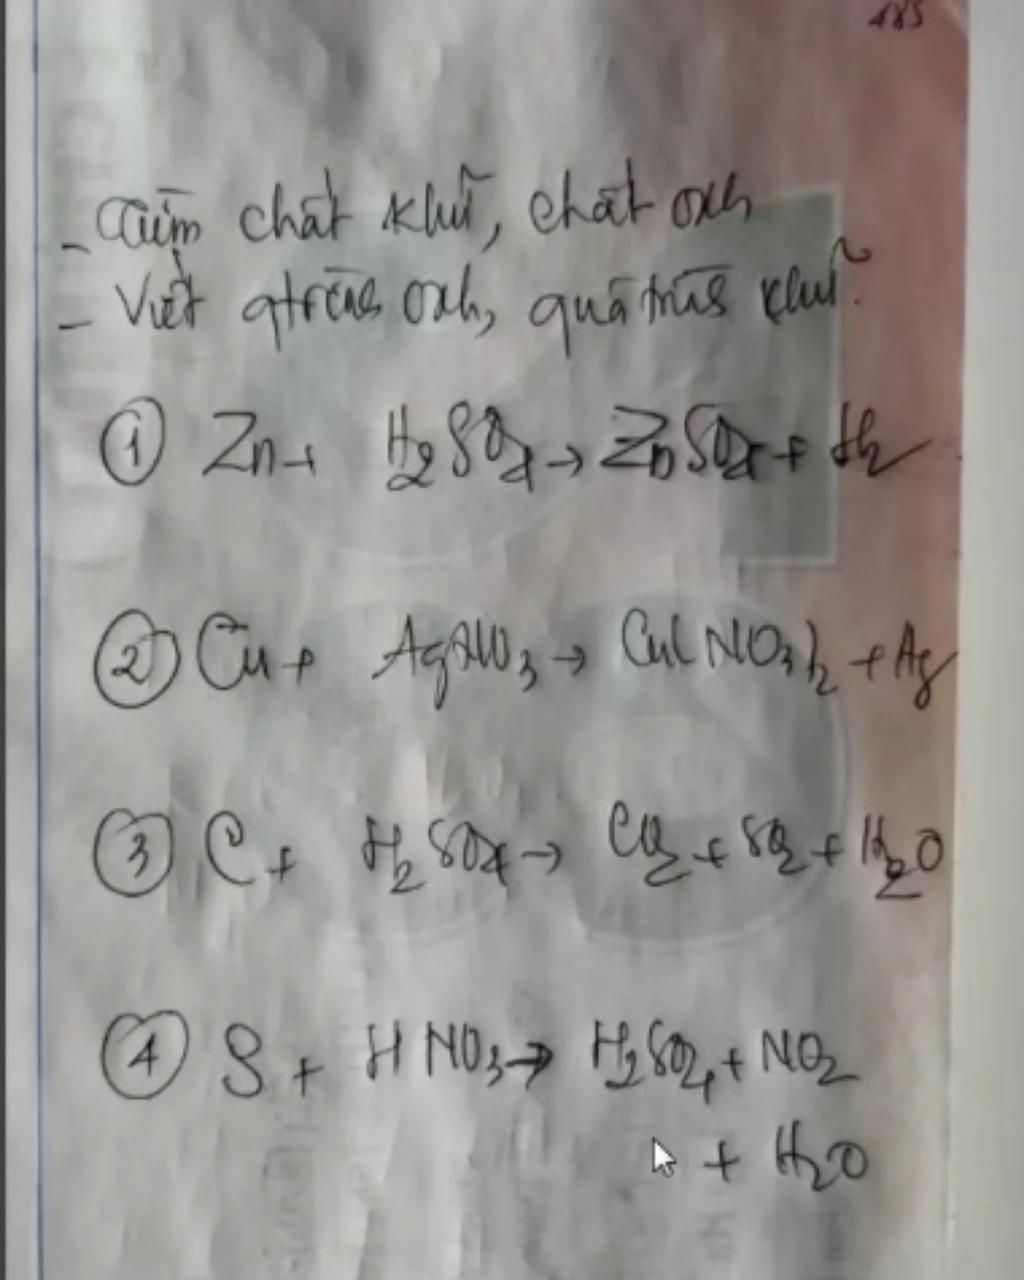 485
- Tìm chất khử, chất oxh
- Viết qtrình oxh, quá trình khử.
① Zn + H₂SO₄ → ZnSO₄ + H₂
② Cu + AgNO₃ → Cu(NO₃)₂ + Ag
③ C + H₂SO₄ → CO₂ + SO₂ + H₂O
④ S + HNO₃ → H₂SO₄ + NO₂
+ H₂O